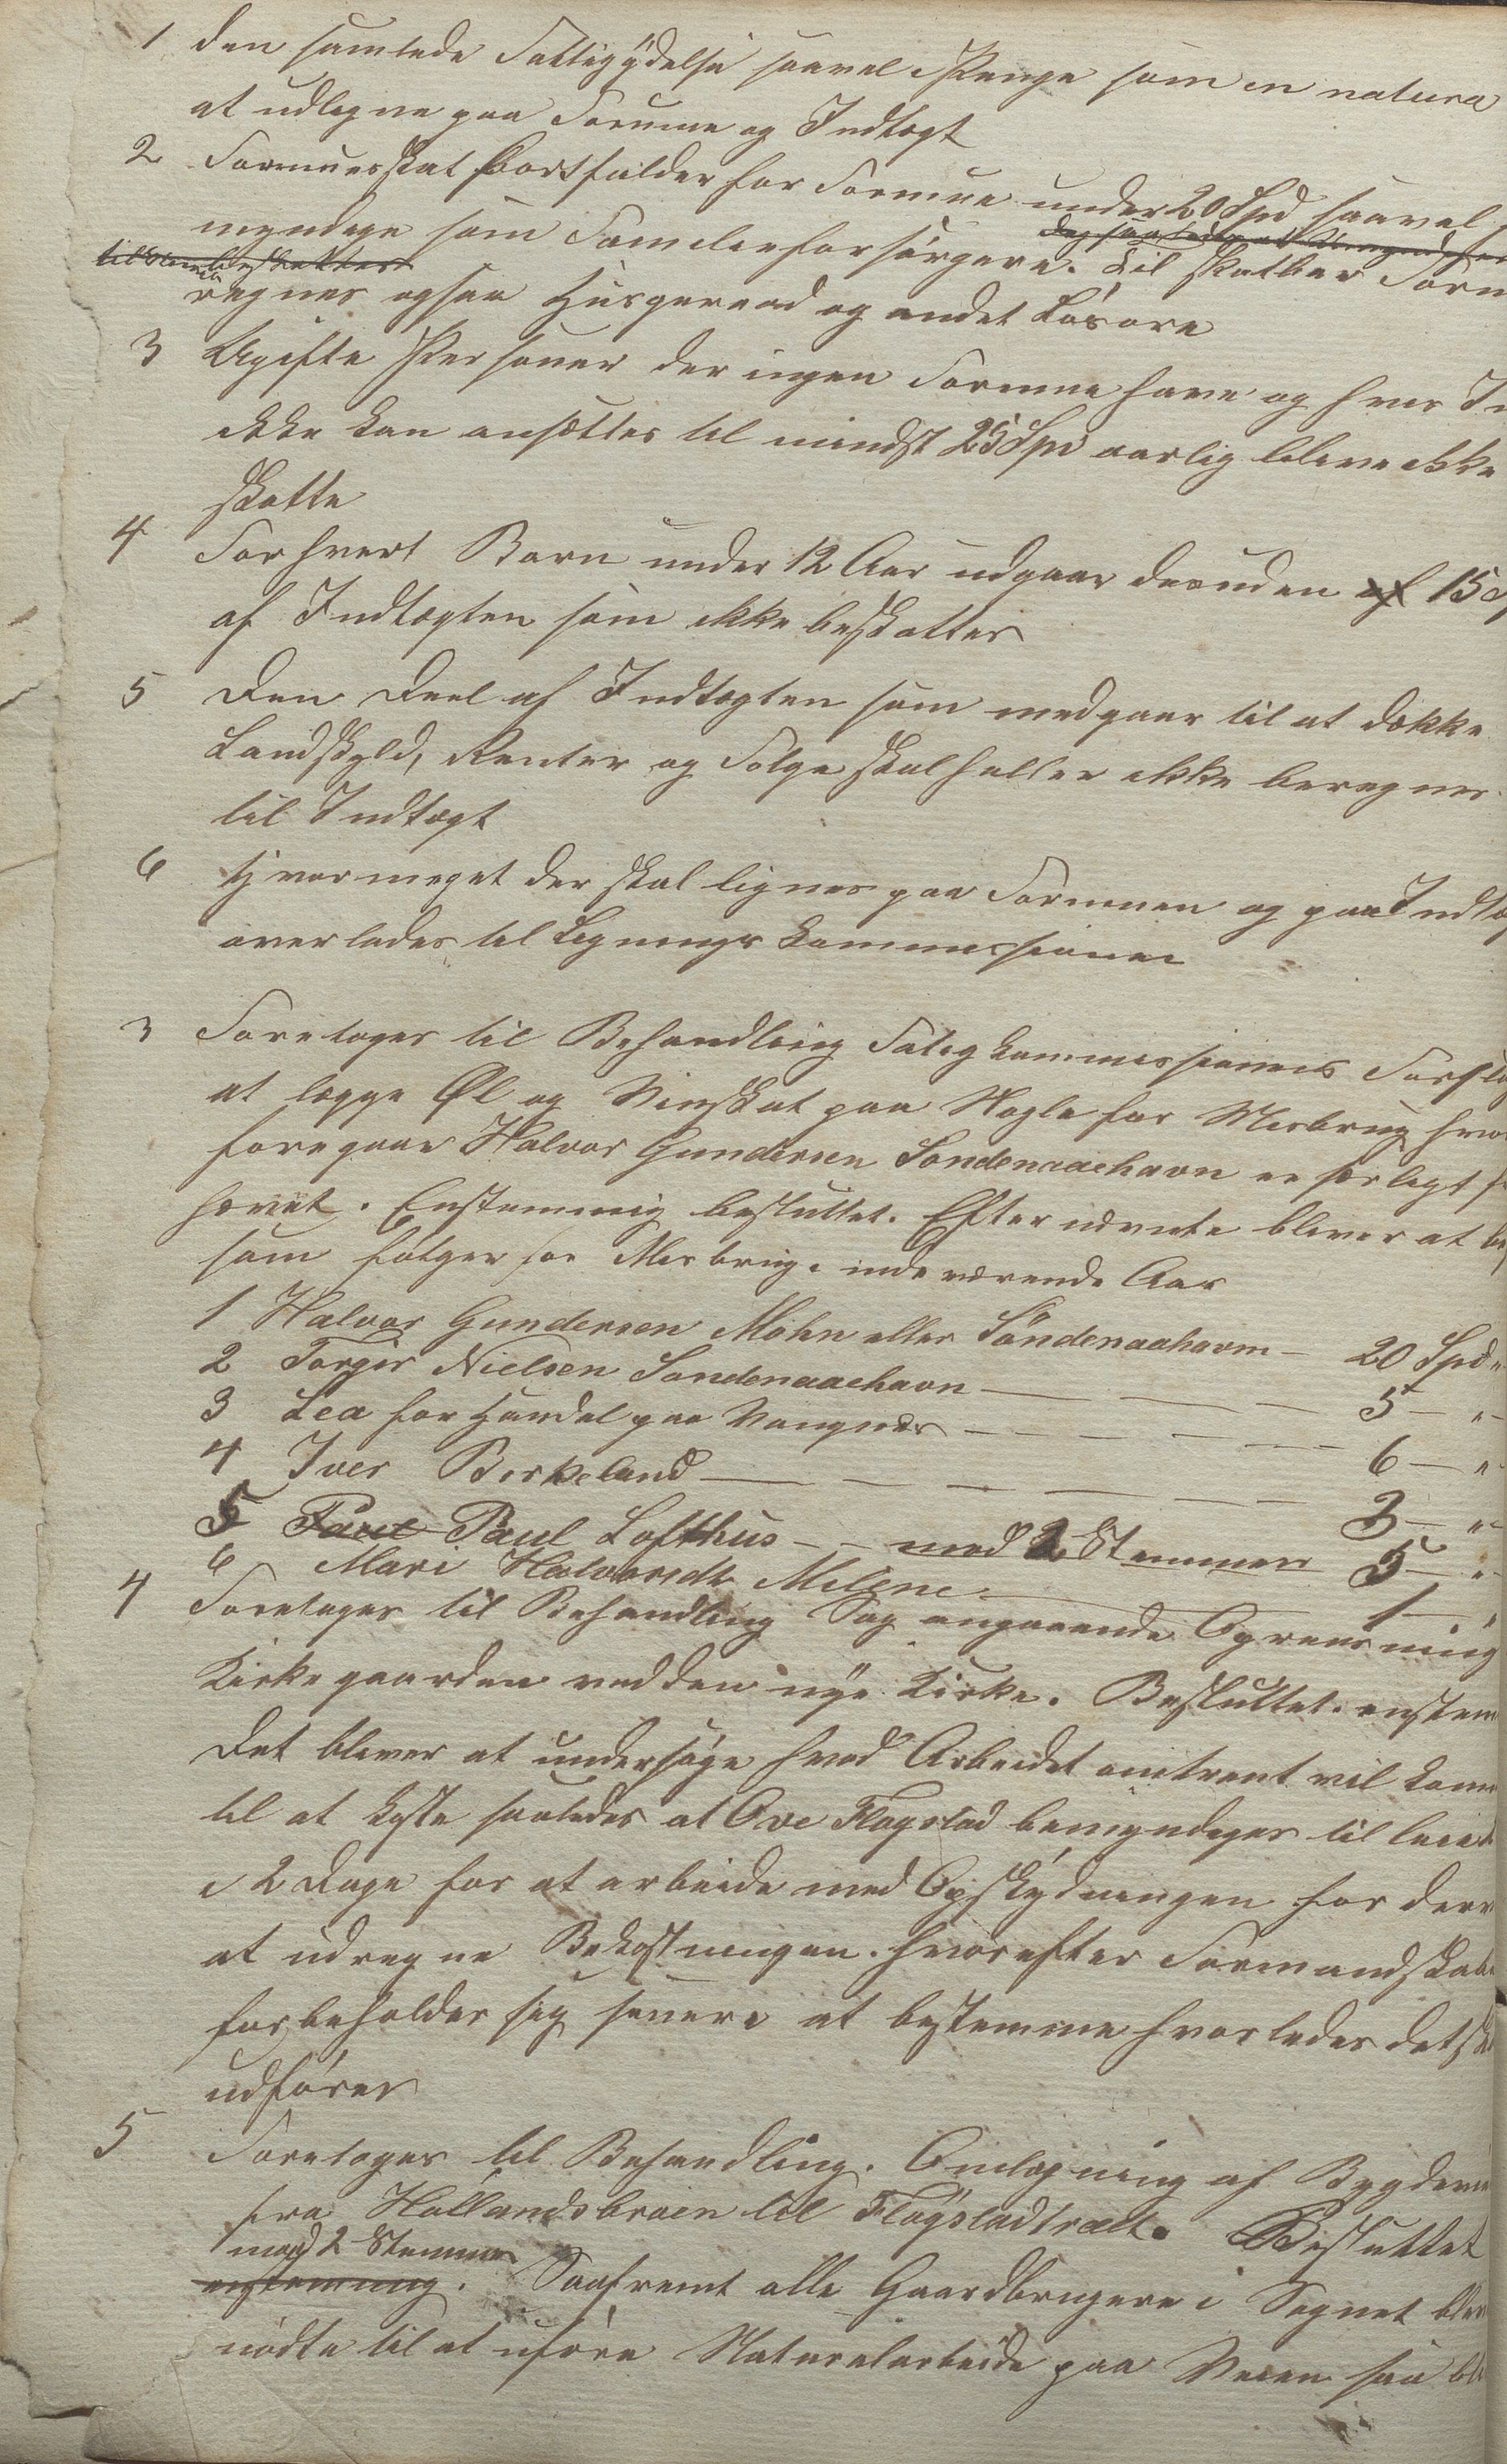 1 den samlede Fattigydelse saavel i Penge som in natura
at udlegne paa Formue og Indtægt
2 Formuesskat bortfalder for Formue under 20 Spd saavel
myndige som Familieforsørgere. Til skatbar Form
regnes ogsaa Husgeraad og andet Løsøre
3 Ugifte Personer der ingen Formue have og hvis In
ikke kan ansættes til mindst 25 Spd aarlig blive ikke
skatte
4 For hvert Barn under 12 Aar udgaar desuden af 15 S
af Indtægten som ikke beskattes
5 Den Deel af Indtægten som medgaar til at dække
Landskyld, Renter og Følge skal heller ikke beregnes
til Indtægt
6 Hvormeget der skal lignes paa Formuen og paa Indtæ
overlades til Ligningskommissionen
3 Foretages til Behandling Fatigkommissionens Forsl
at lægge Øl og Vinskat paa Nogle for Misbrug hvor
foregaar Halvor Gundersen Sondenaaehavn er særligt
hævet. Enstemmig besluttet. Efternævnte bliver at be
som følger for Misbrug i indeværende Aar
1 Halvor Gundersen Mohn eller Søndenaahavn — 20 Spd "
2 Torger Nielsen Sondenaaehavn — 5 — "
3 Lea for Handel paa Vangnes — 6 — "
4 Iver Birkeland — 3 — "
5 Paul Paul Lofthus — med 2 Stemmer 5 — "
6 Mari Halvorsdt Milene — 1 — "
4 Foretages til Behandling Sag angaaende Oprensning
Kirkegaarden ved den nye Kirke. Besluttet. enstem
Det bliver at undersøge hvad Arbeidet omtrent vil kom
til at koste saaledes at Ove Flogstad bemyndiges til leie
i 2 Dage for at arbeide med Opskydningen for derv
at udregne Bekostningen. hvorefter Formandskabe
forbeholder sig senere at bestemme hvorledes det sk
udføres
5 Foretages til Behandling. Omlægning af Bygdevei
fra Hollandsbroen til Flogstadtræet. Besluttet
med 2 Stemmer
enstemmig. Saafremt alle Gaardbrugere i Sognet blev
nødte til at uføre Naturalarbeide paa Veien saa bl